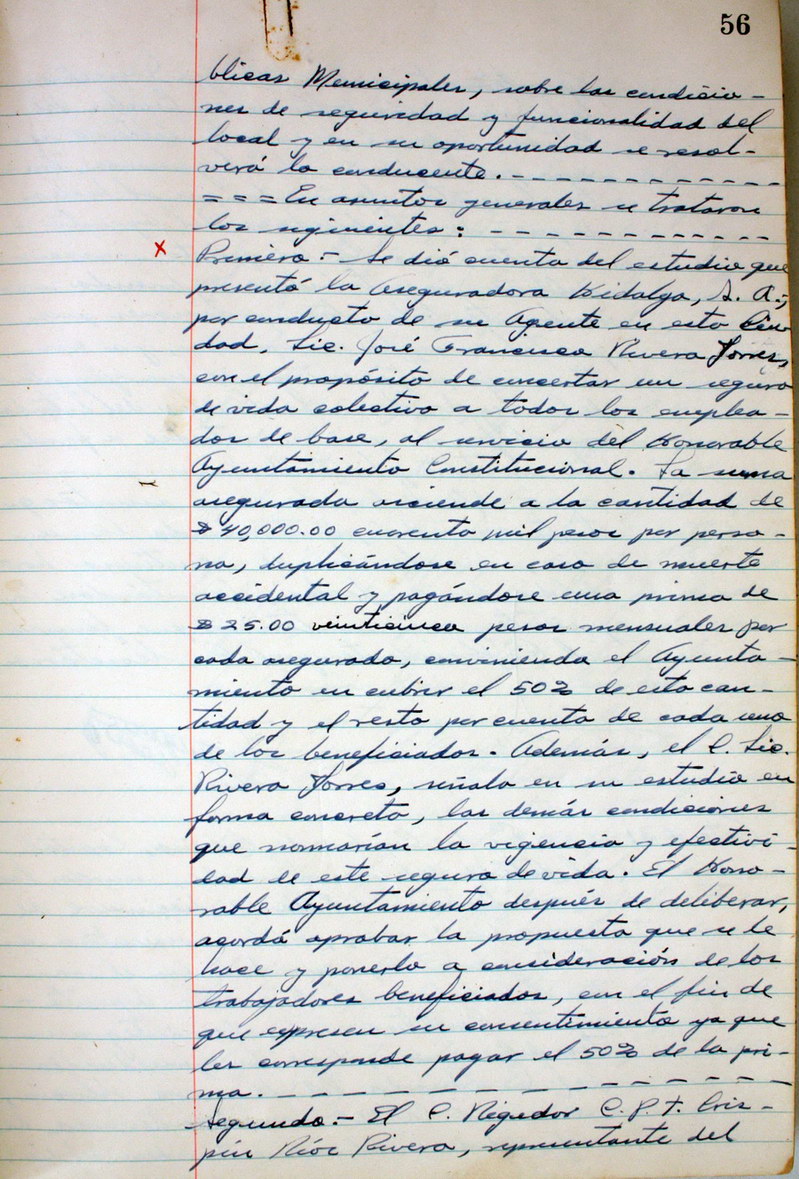 56
blicas Municipales, sobre las condicio-
nes de seguridad y funcionalidad del
local y en su oportunidad se resol-
verá lo conducente. - - - - - - - - - - - -
= = = En asuntos generales se trataron
los siguientes: - - - - - - - - - - - -
x Primero.- Se dió cuenta del estudio que
presentó la Aseguradora Hidalgo, S. A.,
por conducto de su Agente en esta Ciu
dad, Lic. José Francisco Rivera Torres,
con el propósito de concertar un seguro
de vida colectivo a todos los emplea-
dos de base, al servicio del Honorable
Ayuntamiento Constitucional. La suma
asegurada asciende a la cantidad de
$ 40,000.00 cuarenta mil pesos por perso-
na, duplicándose en caso de muerte
accidental y pagándose una prima de
$ 25.00 veinticinco pesos mensuales por
cada asegurado, conviniendo el Ayunta-
miento en cubrir el 50% de esta can-
tidad y el resto por cuenta de cada uno
de los beneficiados. Además, el C. Lic.
Rivera Torres, señala en su estudio en
forma concreta, las demás condiciones
que normarían la vigencia y efectivi-
dad de este seguro de vida. El Hono-
rable Ayuntamiento después de deliberar,
acordó aprobar la propuesta que se le
hace y ponerla a consideración de los
trabajadores beneficiados, con el fin de
que expresen su consentimiento ya que
les corresponde pagar el 50% de la pri-
ma. - - - - - - - - - - - -
Segundo.- El C. Regidor C.P.T. Cris-
pín Ríos Rivera, representante del